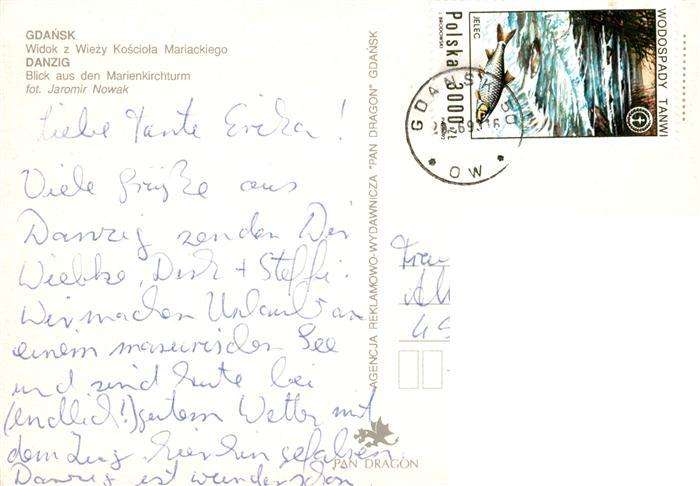 GDAŃSK
Widok z Wieży Kościoła Mariackiego
DANZIG
Blick aus den Marienkirchturm
fot. Jaromir Nowak
Liebe Tante Erika!
Viele Grüße aus
Danzig senden Dir
Wiebke, Dirk + Steffi.
Wir machen Urlaub an
einem masurischen See
und sind heute bei
(endlich!) gutem Wetter mit
dem Zug hierhin gefahren.
Danzig ist wunderschön
AGENCJA REKLAMOWO-WYDAWNICZA "PAN DRAGON" GDAŃSK
PAN DRAGON
WODOSPADY TANWI
JELEC
Polska 3000 zł
GDAŃSK 50
OW
Frau